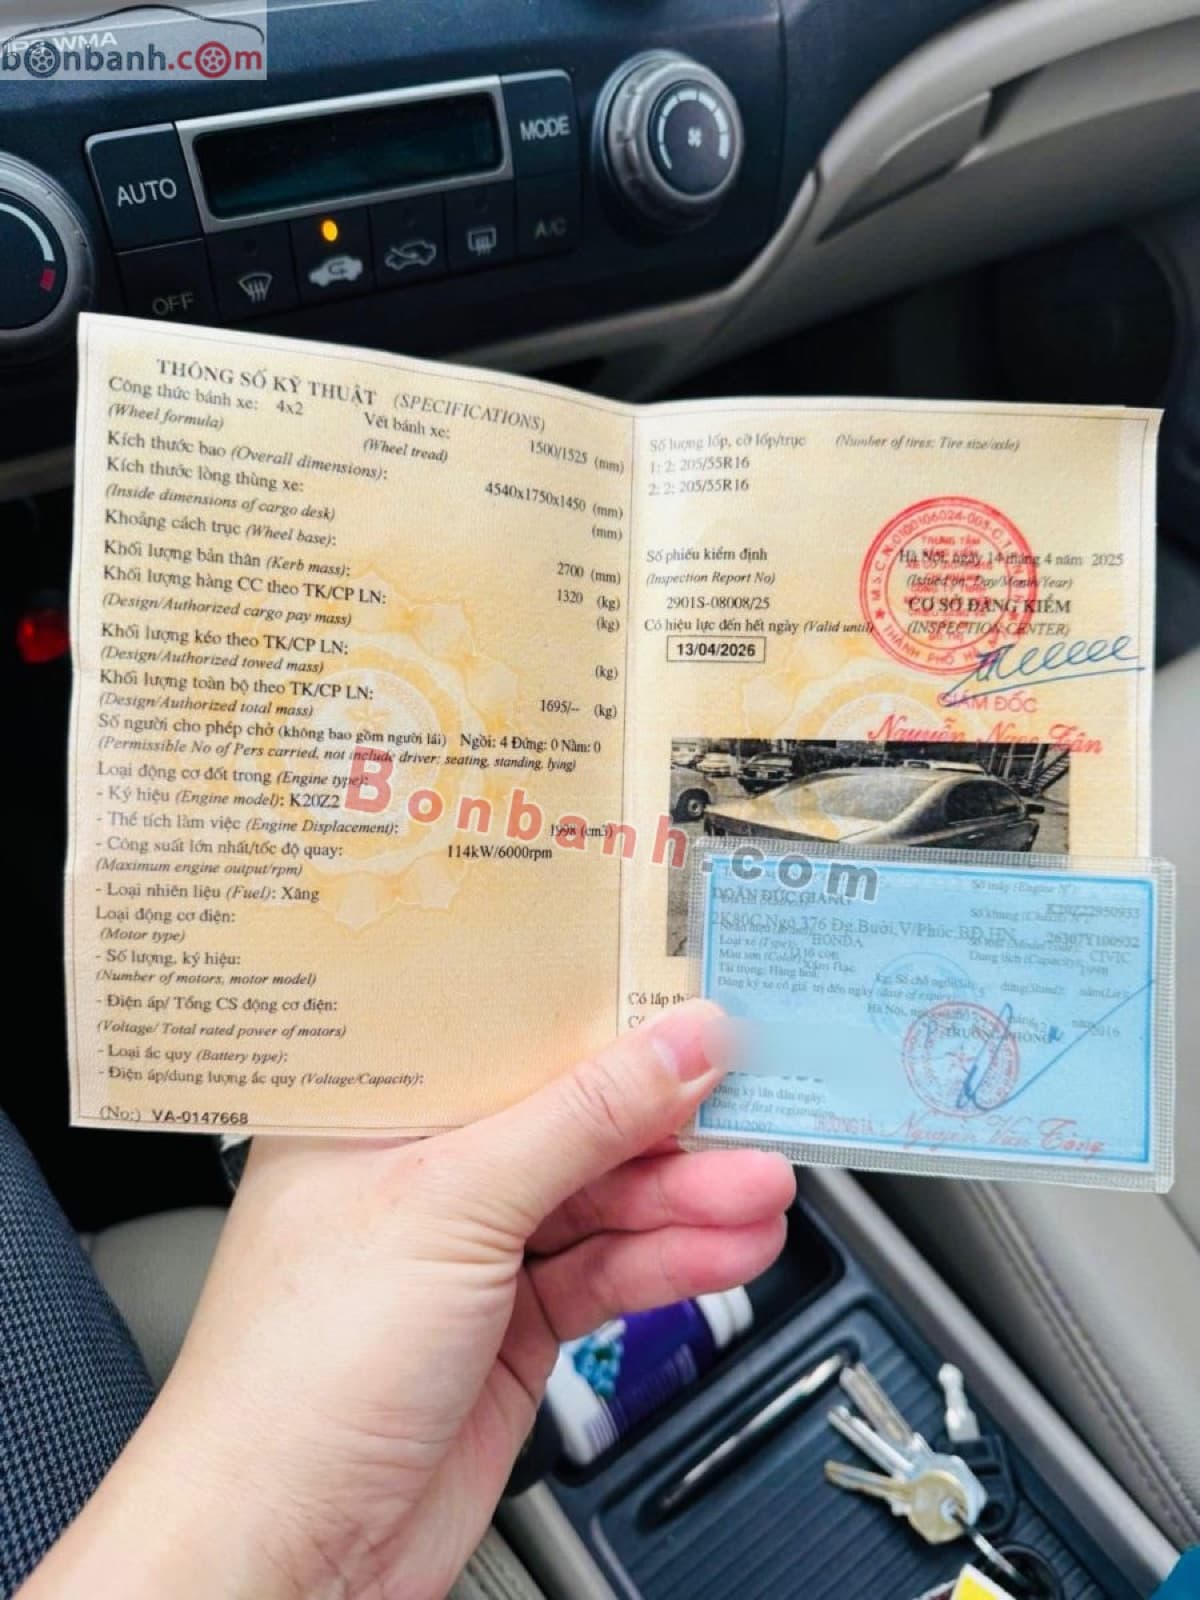 bonbanh.com
AUTO
MODE
OFF
A/C
THÔNG SỐ KỸ THUẬT (SPECIFICATIONS)
Công thức bánh xe: 4x2
(Wheel formula)
Vết bánh xe: 1500/1525 (mm)
(Wheel tread)
Kích thước bao (Overall dimensions): 4540x1750x1450 (mm)
Kích thước lòng thùng xe: (mm)
(Inside dimensions of cargo desk)
Khoảng cách trục (Wheel base): 2700 (mm)
Khối lượng bản thân (Kerb mass): 1320 (kg)
Khối lượng hàng CC theo TK/CP LN: (kg)
(Design/Authorized cargo pay mass)
Khối lượng kéo theo TK/CP LN: (kg)
(Design/Authorized towed mass)
Khối lượng toàn bộ theo TK/CP LN: 1695/-- (kg)
(Design/Authorized total mass)
Số người cho phép chở (không bao gồm người lái) Ngồi: 4 Đứng: 0 Nằm: 0
(Permissible No of Pers carried, not include driver: seating, standing, lying)
Loại động cơ đốt trong (Engine type):
- Ký hiệu (Engine model): K20Z2
- Thể tích làm việc (Engine Displacement): 1998 (cm³)
- Công suất lớn nhất/tốc độ quay: 114kW/6000rpm
(Maximum engine output/rpm)
- Loại nhiên liệu (Fuel): Xăng
Loại động cơ điện:
(Motor type)
- Số lượng, ký hiệu:
(Number of motors, motor model)
- Điện áp/ Tổng CS động cơ điện:
(Voltage/ Total rated power of motors)
- Loại ắc quy (Battery type):
- Điện áp/dung lượng ắc quy (Voltage/Capacity):
(No:) VA-0147668
Số lượng lốp, cỡ lốp/trục (Number of tires: Tire size/axle)
1: 2: 205/55R16
2: 2: 205/55R16
Số phiếu kiểm định
(Inspection Report No)
2901S-08008/25
Có hiệu lực đến hết ngày (Valid until)
13/04/2026
Hà Nội, ngày 14 tháng 4 năm 2025
(Issued on: Day/Month/Year)
CƠ SỞ ĐĂNG KIỂM
(INSPECTION CENTER)
GIÁM ĐỐC
Nguyễn Ngọc Tân
Bonbanh.com
Có lắp
Số máy (Engine N°):
DOÃN ĐỨC GIANG
K20Z22950933
Số khung
2K80C Ngõ 376 Đg.Bưởi,V/Phúc,BĐ,HN
26307Y100932
HONDA
CIVIC
Loại xe (Type):
Dung tích (Capacity):
1998
Màu sơn (Color):
Tải trọng: Hàng hoá: kg; Số chỗ ngồi
Đăng ký xe có giá trị đến ngày (date of expiry)
Hà Nội, ngày
2016
TRƯỞNG PHÒNG
Đăng ký lần đầu ngày:
Date of first registration
13/11/2007
Nguyễn Văn Tòng